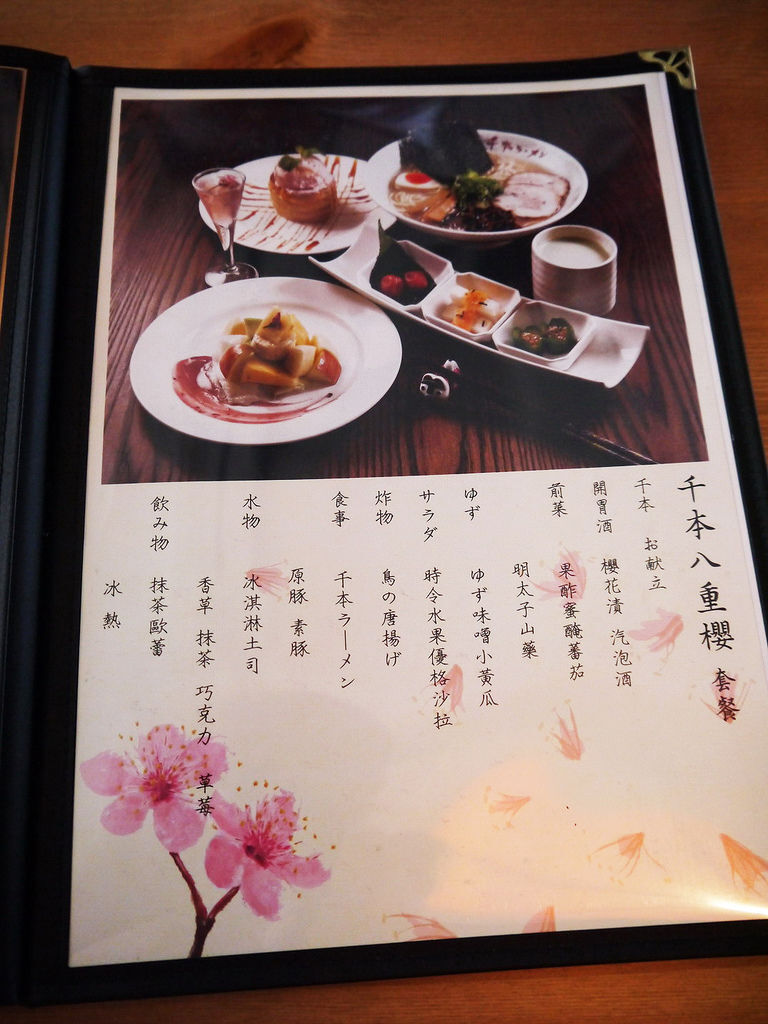 千本八重櫻 套餐
千本 お献立
開胃酒 櫻花漬 汽泡酒
前菜 果酢蜜醃蕃茄
明太子山藥
ゆず ゆず味噌小黃瓜
サラダ 時令水果優格沙拉
炸物 鳥の唐揚げ
食事 千本ラーメン
原豚 素豚
氷物 冰淇淋土司
香草 抹茶 巧克力 草莓
飲み物 抹茶歐蕾
冰 熱